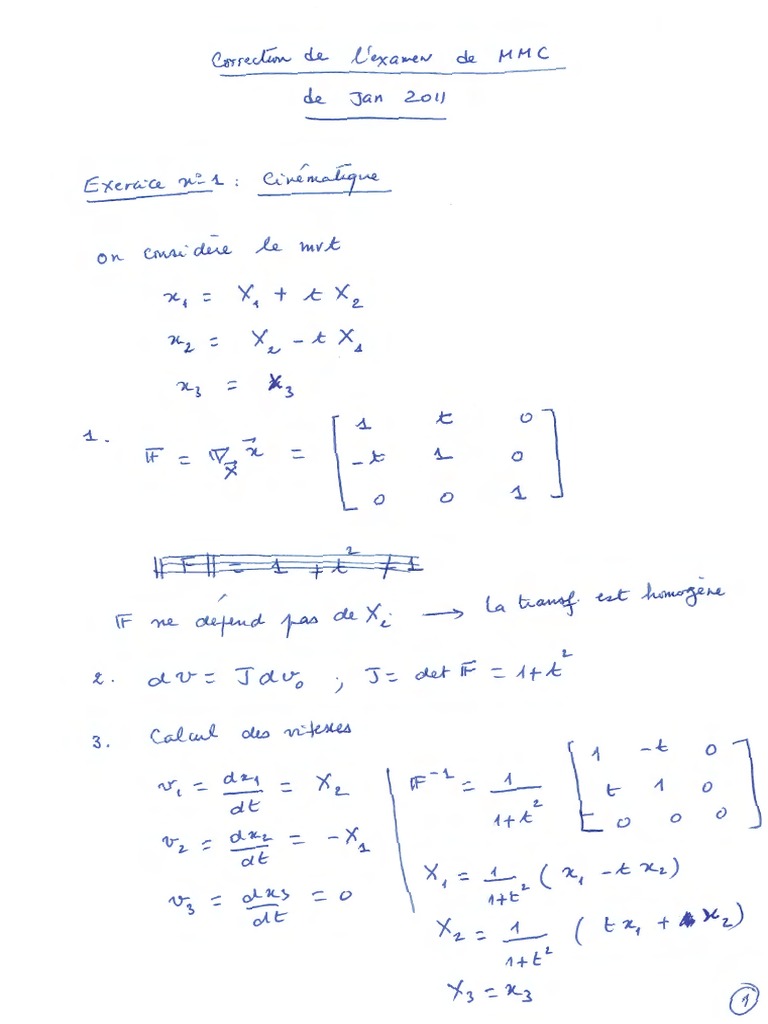 Correction de l'examen de MMC
de Jan 2011
Exercice n°1 : Cinématique
on considère le mvt
x₁ = X₁ + t X₂
x₂ = X₂ - t X₁
x₃ = X₃
1. 𝔽 = ∇_X⃗ x⃗ = [ 1 t 0
-t 1 0
0 0 1 ]
‖ 𝔽 ‖ = 1 + t² ≠ 1
𝔽 ne dépend pas de Xᵢ → la transf. est homogène
2. dv = J dv₀ ; J = det 𝔽 = 1+t²
3. Calcul des vitesses
v₁ = dx₁/dt = X₂
v₂ = dx₂/dt = -X₁
v₃ = dx₃/dt = 0
𝔽⁻¹ = 1/(1+t²) [ 1 -t 0
t 1 0
0 0 0 ]
X₁ = 1/(1+t²) ( x₁ - t x₂)
X₂ = 1/(1+t²) ( t x₁ + x₂)
X₃ = x₃
1